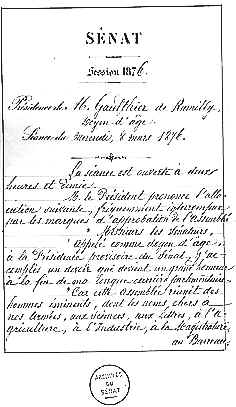 SÉNAT
Session 1876.
Présidence de M. Gaulthier de Rumilly,
Doyen d'âge.
Séance du mercredi, 8 mars 1876.
La séance est ouverte à deux
heures et demie.
M. le Président prononce l'allo-
cution suivante, fréquemment interrompue
par les marques d'approbation de l'Assemblée
" Messieurs les Sénateurs,
" Appelé comme doyen d'âge,
à la Présidence provisoire du Sénat, j'ac-
complis un devoir qui devient un grand honneur
à la fin de ma longue carrière parlementaire.
" Car cette Assemblée réunit des
hommes éminents, dont les noms, chers à
nos armées, aux sciences, aux lettres, à l'A-
griculture, à l'Industrie, à la Magistrature,
au Barreau
ARCHIVES
DU
SÉNAT